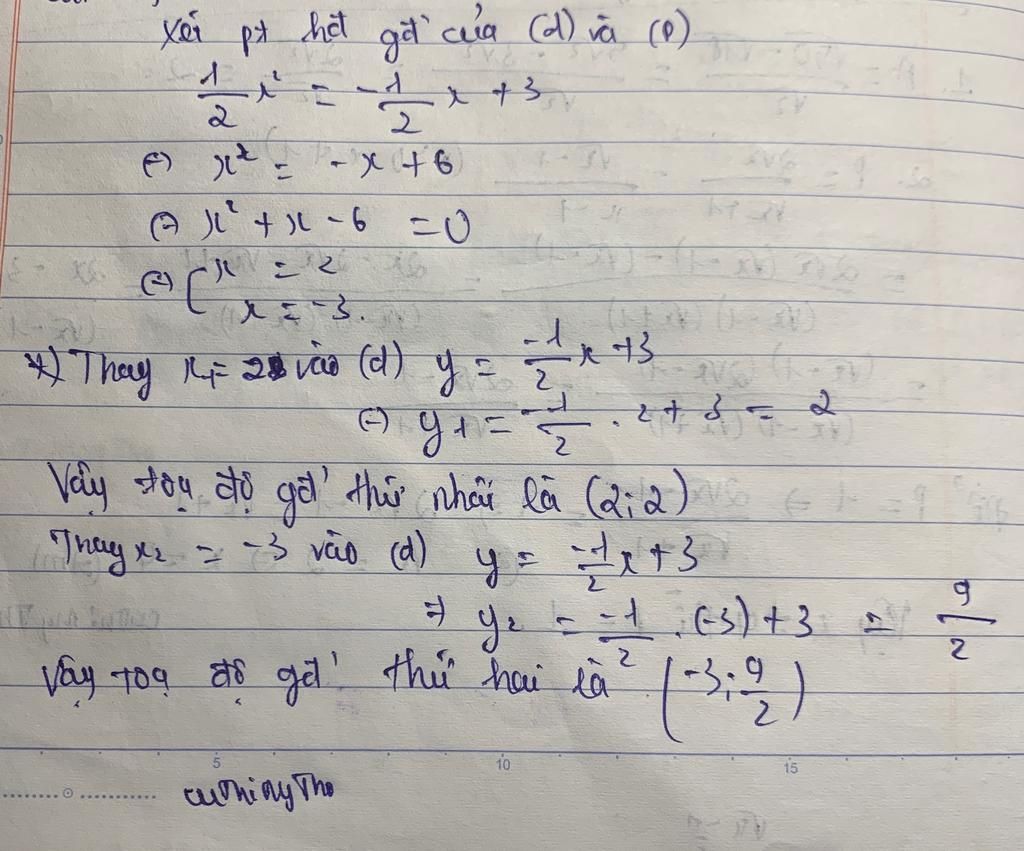 Xét pt hđ gđ' của (d) và (P)
1/2 x² = -1/2 x + 3
(=) x² = -x + 6
(=) x² + x - 6 = 0
(=) [ x = 2
x = -3.
*) Thay x₁ = 2 vào (d) y = -1/2 x + 3
(=) y₁ = -1/2 . 2 + 3 = 2
Vậy toạ độ gđ' thứ nhất là (2; 2)
Thay x₂ = -3 vào (d) y = -1/2 x + 3
=> y₂ = -1/2 . (-3) + 3 = 9/2
Vậy toạ độ gđ' thứ hai là (-3; 9/2)
5 10 15